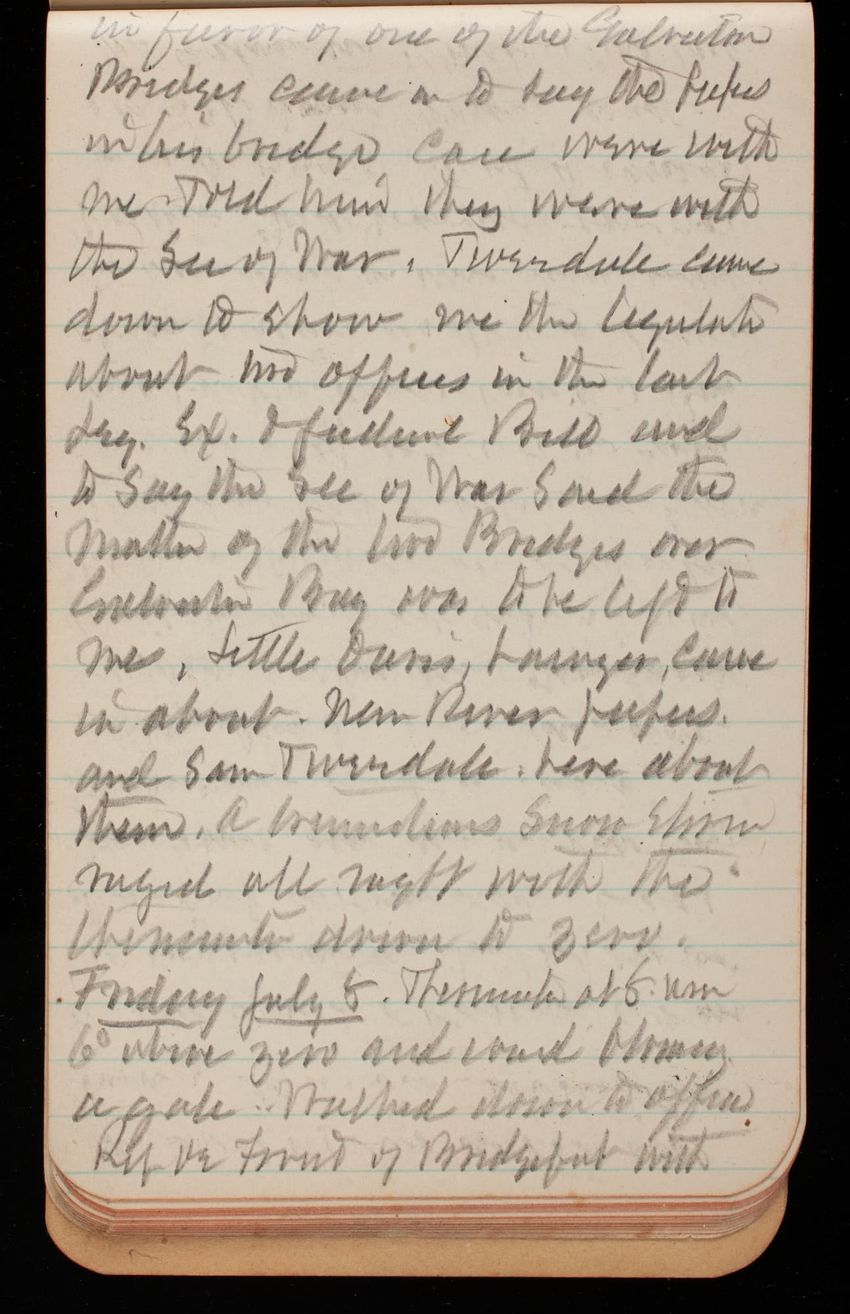 in favor of one of the Galveston
Bridges came in to say the papers
in his bridge case were with
me. Told him they were with
the Sec of War. Tweedale came
down to show me the legislate
about two offices in the last
Leg. Ex. & Judicial Bill and
to say the Sec of War said the
matter of the two Bridges over
Galveston Bay was to be left to
me, Little Davis, Lawyer, came
in about New River papers.
and Saw Tweedale here about
them. A tremendous Snow Storm
raged all night with the
thermometer down to zero.
Friday July 8. Thermometer at 8. am
6° above zero and wind blowing
a gale. Walked down to office
Rep De Forest of Bridgeport with